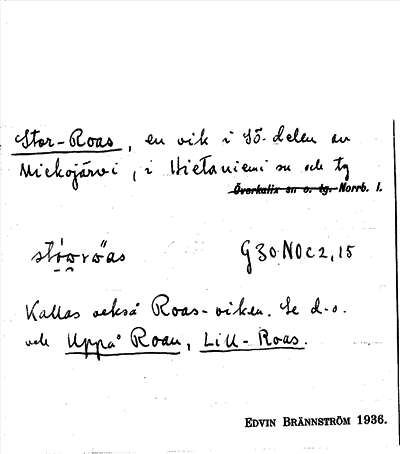 Stor-Roas, en vik i sö. delen av
Miekojärvi, i Hietaniemi sn och tg
Överkalix sn o. tg. Norrb. l.
G30 NO c 2, 15
Kallas också Roas-viken. Se d.o.
och Uppå Roan, Lill-Roas.
EDVIN BRÄNNSTRÖM 1936.